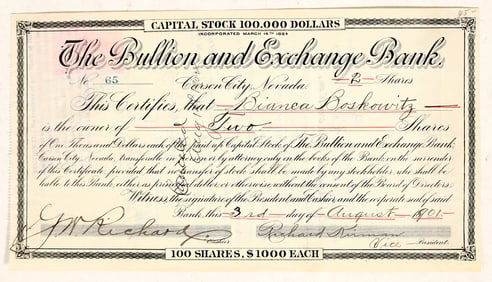 95-
CAPITAL STOCK 100.000 DOLLARS
INCORPORATED MARCH 14TH 1884
The Bullion and Exchange Bank.
No 65 Carson City, Nevada. 2 Shares
This Certifies, that Bianca Boskowitz
is the owner of Two Shares
of One Thousand Dollars each of the paid up Capital Stock of The Bullion and Exchange Bank
Carson City, Nevada, transferable in person or by attorney only on the books of the Bank, on the surrender
of this Certificate provided that no transfer of stock shall be made by any stockholder who shall be
liable to this Bank, either as principal debtor, or otherwise, without the consent of the Board of Directors.
Witness, the signature of the President and Cashier, and the corporate seal of said
Bank, this 3rd day of August 1901.
Cashier Richard Kirman
Vice President.
100 SHARES, $1000 EACH